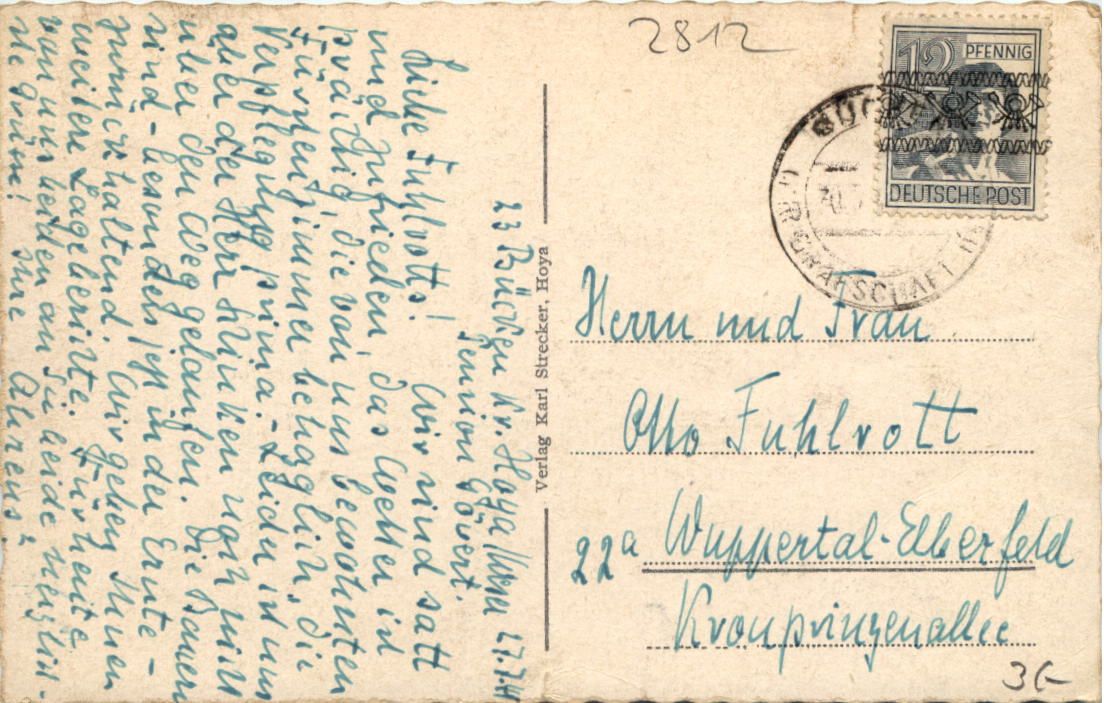 23 Bücken Kr. Hoya/Weser 27.7.48
Pension Gövert.
Liebe Fuhlrotts! Wir sind satt
und zufrieden, das Wetter ist
prächtig, die von uns bewohnten
Fürstenzimmer behaglich, die
Verpflegung prima. - Leider ist uns
aber der Herr Schinken noch nicht
über den Weg gelaufen. Die Bauern
sind - besonders jetzt in der Ernte -
zurückhaltend. Wir geben Ihnen
weitere Lageberichte. Für heute
von uns beiden an Sie beide herzlich-
ste Grüße! Ihre
Verlag Karl Strecker, Hoya
2812
12 PFENNIG
DEUTSCHE POST
GRAFSCHAFT
Herrn und Frau
Otto Fuhlrott
22a Wuppertal-Elberfeld
Kronprinzenallee
3,-